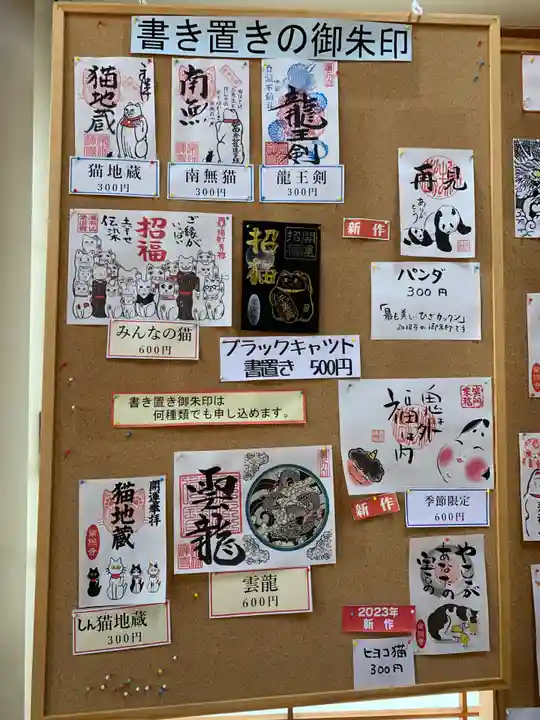 書き置きの御朱印
猫地蔵
猫地蔵
300円
南無
南無猫
300円
龍王剣
龍王剣
300円
再見
ありがとう
新作
パンダ
300円
「最も美しいひざカックン」
2018年の御朱印です
ご縁が
いっぱい
招福
幸せ
伝染
みんなの猫
600円
開運
招福
招猫
ブラックキャット
書置き 500円
書き置き御朱印は
何種類でも申し込めます。
鬼は外
福は内
新作
季節限定
600円
開運奉拝
猫地蔵
しん猫地蔵
300円
雲龍
雲龍
600円
ここが
あなたの
宝もの
2023年
新作
ヒヨコ猫
300円